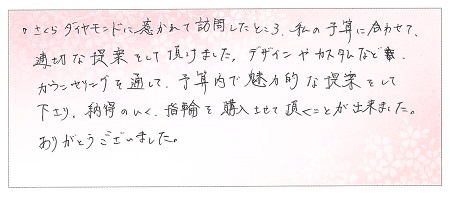 。さくらダイヤモンドに惹かれて訪問したところ、私の予算に合わせて、
適切な提案をして頂けました。デザインやカスタムなど、
カウンセリングを通して、予算内で魅力的な提案をして
下さり、納得のいく、指輪を購入させて頂くことが出来ました。
ありがとうございました。